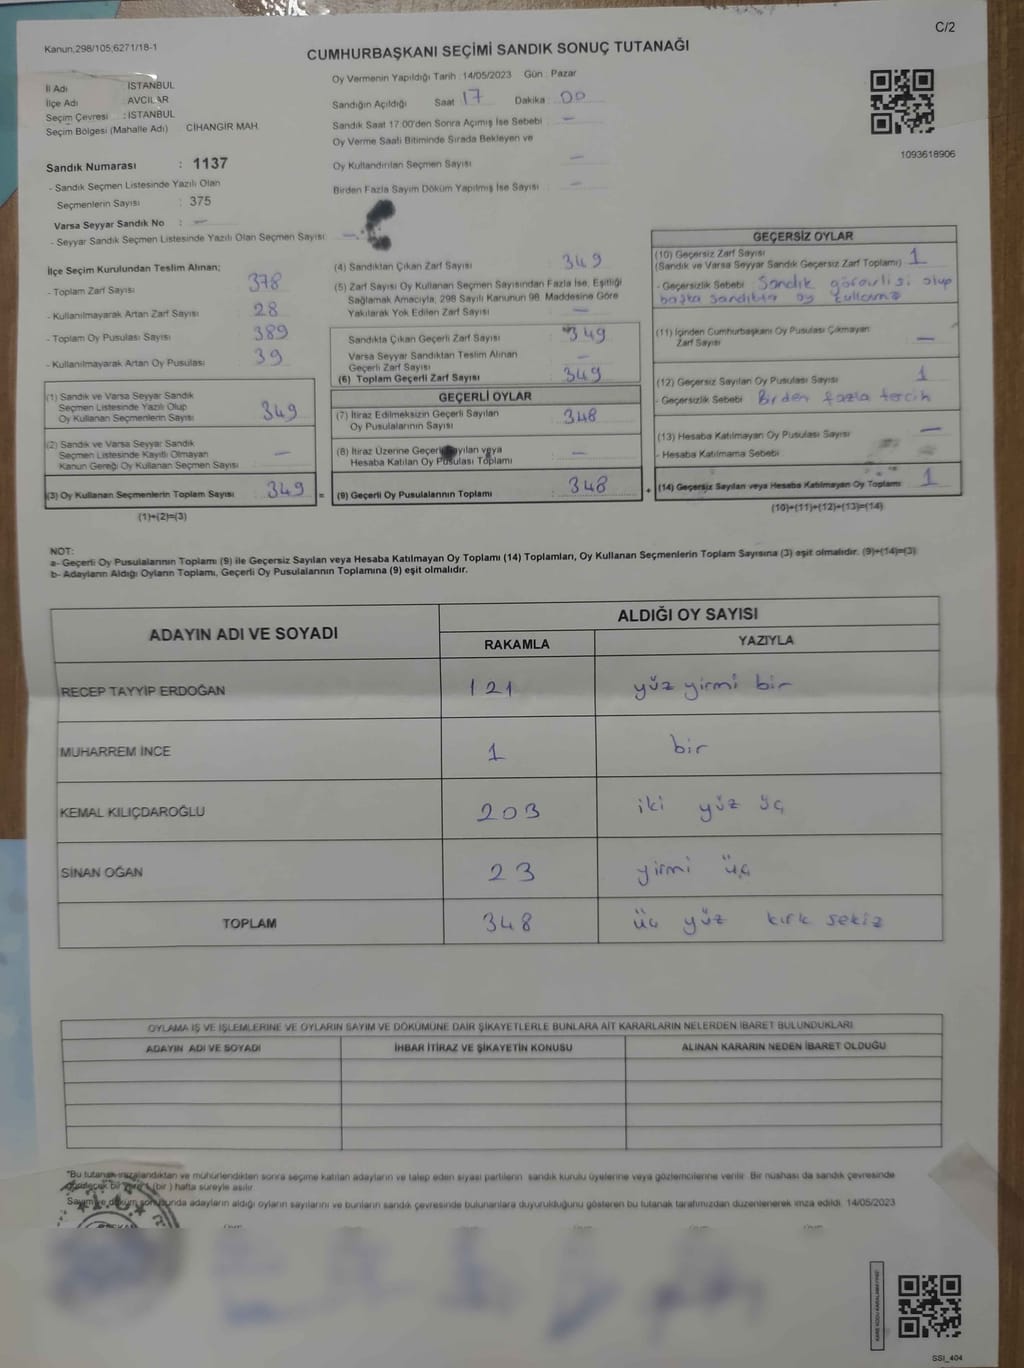 C/2
Kanun.298/105;6271/18-1
CUMHURBAŞKANI SEÇİMİ SANDIK SONUÇ TUTANAĞI
İl Adı İSTANBUL
İlçe Adı AVCILAR
Seçim Çevresi : İSTANBUL
Seçim Bölgesi (Mahalle Adı) CİHANGİR MAH.
Oy Vermenin Yapıldığı Tarih : 14/05/2023 Gün : Pazar
Sandığın Açıldığı Saat 17 Dakika : 00
Sandık Saat 17:00'den Sonra Açımış İse Sebebi : —
Oy Verme Saati Bitiminde Sırada Bekleyen ve
Oy Kullandırılan Seçmen Sayısı —
Birden Fazla Sayım Döküm Yapılmış İse Sayısı : —
1093618906
Sandık Numarası : 1137
- Sandık Seçmen Listesinde Yazılı Olan
Seçmenlerin Sayısı : 375
Varsa Seyyar Sandık No : —
- Seyyar Sandık Seçmen Listesinde Yazılı Olan Seçmen Sayısı: —
İlçe Seçim Kurulundan Teslim Alınan;
- Toplam Zarf Sayısı 378
- Kullanılmayarak Artan Zarf Sayısı 28
- Toplam Oy Pusulası Sayısı 389
- Kullanılmayarak Artan Oy Pusulası 39
(1) Sandık ve Varsa Seyyar Sandık
Seçmen Listesinde Yazılı Olup
Oy Kullanan Seçmenlerin Sayısı 349
(2) Sandık ve Varsa Seyyar Sandık
Seçmen Listesinde Kayıtlı Olmayan
Kanun Gereği Oy Kullanan Seçmen Sayısı —
(3) Oy Kullanan Seçmenlerin Toplam Sayısı : 349 =
(1)+(2)=(3)
(4) Sandıktan Çıkan Zarf Sayısı : 349
(5) Zarf Sayısı Oy Kullanan Seçmen Sayısından Fazla İse, Eşitliği
Sağlamak Amacıyla, 298 Sayılı Kanunun 98. Maddesine Göre
Yakılarak Yok Edilen Zarf Sayısı : —
Sandıkta Çıkan Geçerli Zarf Sayısı 349
Varsa Seyyar Sandıktan Teslim Alınan
Geçerli Zarf Sayısı —
(6) Toplam Geçerli Zarf Sayısı : 349
GEÇERLİ OYLAR
(7) İtiraz Edilmeksizin Geçerli Sayılan
Oy Pusulalarının Sayısı : 348
(8) İtiraz Üzerine Geçerli Sayılan veya
Hesaba Katılan Oy Pusulası Toplamı : —
(9) Geçerli Oy Pusulalarının Toplamı : 348 +
GEÇERSİZ OYLAR
(10) Geçersiz Zarf Sayısı
(Sandık ve Varsa Seyyar Sandık Geçersiz Zarf Toplamı) : 1
- Geçersizlik Sebebi Sandık görevlisi olup
başka sandıkta oy
(11) İçinden Cumhurbaşkanı Oy Pusulası Çıkmayan
Zarf Sayısı —
(12) Geçersiz Sayılan Oy Pusulası Sayısı 1
- Geçersizlik Sebebi Birden fazla tercih
(13) Hesaba Katılmayan Oy Pusulası Sayısı —
- Hesaba Katılmama Sebebi
(14) Geçersiz Sayılan veya Hesaba Katılmayan Oy Toplamı 1
(10)+(11)+(12)+(13)=(14)
NOT:
a- Geçerli Oy Pusulalarının Toplamı (9) ile Geçersiz Sayılan veya Hesaba Katılmayan Oy Toplamı (14) Toplamları, Oy Kullanan Seçmenlerin Toplam Sayısına (3) eşit olmalıdır. (9)+(14)=(3)
b- Adayların Aldığı Oyların Toplamı, Geçerli Oy Pusulalarının Toplamına (9) eşit olmalıdır.
ADAYIN ADI VE SOYADI ALDIĞI OY SAYISI
RAKAMLA YAZIYLA
RECEP TAYYİP ERDOĞAN 121 yüz yirmi bir
MUHARREM İNCE 1 bir
KEMAL KILIÇDAROĞLU 203 iki yüz üç
SİNAN OĞAN 23 yirmi üç
TOPLAM 348 üç yüz kırk sekiz
OYLAMA İŞ VE İŞLEMLERİNE VE OYLARIN SAYIM VE DÖKÜMÜNE DAİR ŞİKAYETLERLE BUNLARA AİT KARARLARIN NELERDEN İBARET BULUNDUKLARI
ADAYIN ADI VE SOYADI İHBAR İTİRAZ VE ŞİKAYETİN KONUSU ALINAN KARARIN NEDEN İBARET OLDUĞU
"Bu tutanak imzalandıktan ve mühürlendikten sonra seçime katılan adayların ve talep eden siyasi partilerin sandık kurulu üyelerine veya gözlemcilerine verilir. Bir nüshası da sandık çevresinde
bir yere 1 (bir) hafta süreyle asılır.
Sayım ve döküm sonunda adayların aldığı oyların sayılarını ve bunların sandık çevresinde bulunanlara duyurulduğunu gösteren bu tutanak tarafımızdan düzenlenerek imza edildi. 14/05/2023
SSI_404